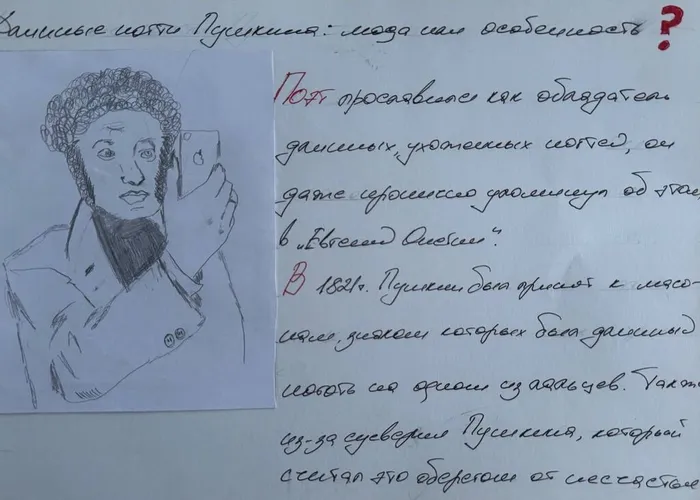 Длинные ногти Пушкина: мода или особенность?
Поэт прославился как обладатель
длинных, ухоженных ногтей, он
даже иронично упомянул об этом
в „Евгений Онегин".
В 1821г. Пушкин был принят к масо-
нам, знаком которых был длинный
ноготь на одном из пальцев. Также
из-за суеверия Пушкина, который
считал это оберегом от несчастья